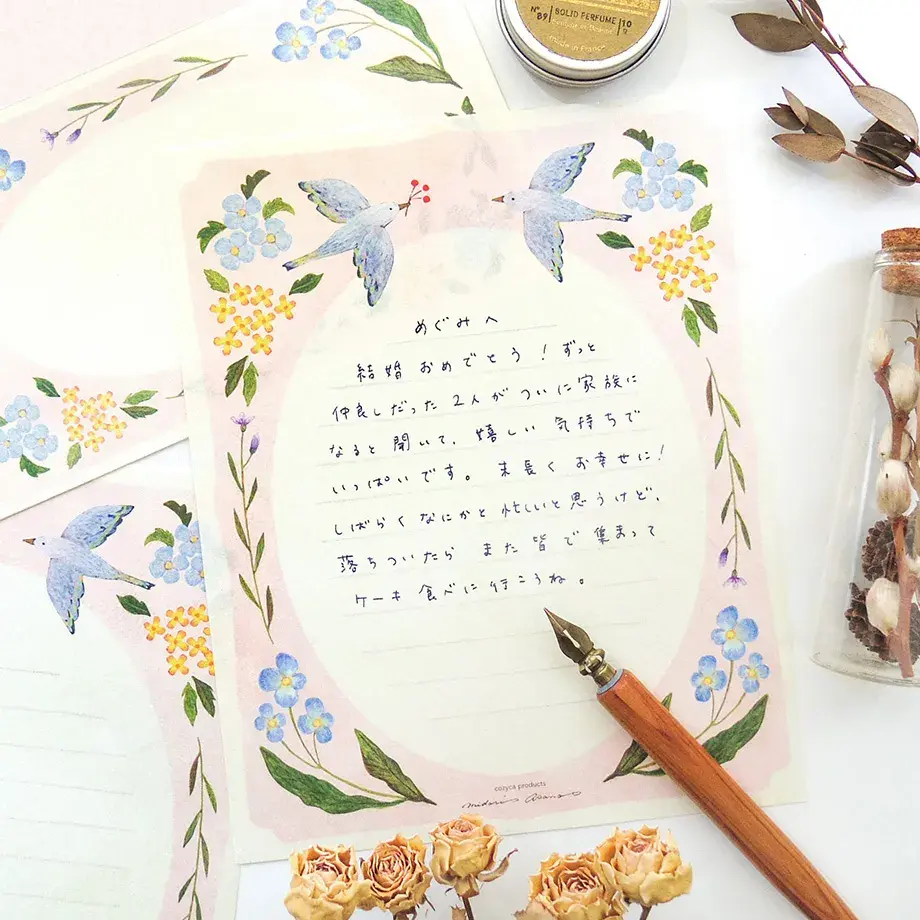 Nº 89
SOLID PERFUME
10
made in France
めぐみへ
結婚おめでとう！ずっと
仲良しだった2人がついに家族に
なると聞いて、嬉しい気持ちで
いっぱいです。末長くお幸せに！
しばらくなにかと忙しいと思うけど、
落ちついたらまた皆で集まって
ケーキ食べに行こうね。
cozyca products
midori asano